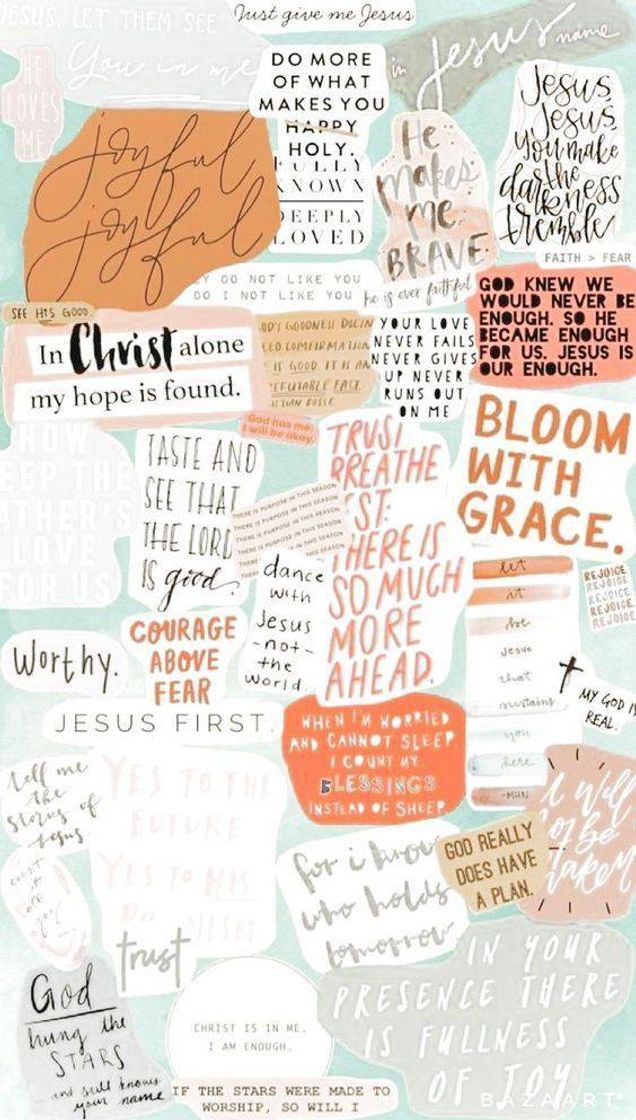 Just give me Jesus
JESUS, LET THEM SEE
You in me
in Jesus name
HE
LOVES
ME
DO MORE
OF WHAT
MAKES YOU
HAPPY
HOLY.
FULLY
KNOWN
DEEPLY
LOVED
joyful
joyful
He
makes
me
BRAVE.
Jesus,
Jesus,
you make
the
darkness
tremble
FAITH > FEAR
DO NOT LIKE YOU
DO I NOT LIKE YOU
he is ever faithful
GOD KNEW WE
WOULD NEVER BE
ENOUGH. SO HE
BECAME ENOUGH
FOR US. JESUS IS
OUR ENOUGH.
SEE HIS GOOD.
In Christ alone
my hope is found.
GOODNESS
IS GOOD. IT IS AN
YOUR LOVE
NEVER FAILS
NEVER GIVES
UP NEVER
RUNS OUT
ON ME
God has me,
I will be okay.
BLOOM
WITH
GRACE.
HOW
EEP THE
ATHER'S
LOVE
FOR US
TASTE AND
SEE THAT
THE LORD
IS good.
THERE IS PURPOSE IN THIS SEASON
THERE IS PURPOSE IN THIS SEASON
THERE IS PURPOSE IN THIS SEASON
THERE IS PURPOSE IN THIS SEASON
THERE IS PURPOSE IN THIS SEASON
TRUST
BREATHE
ST:
THERE IS
SO MUCH
MORE
AHEAD.
dance
with
Jesus
-not-
the
world.
let
it
be
Jesus
that
sustains
you
here
-MHN
REJOICE
REJOICE
REJOICE
REJOICE
REJOICE
Worthy.
COURAGE
ABOVE
FEAR
MY GOD IS
REAL.
JESUS FIRST.
WHEN I'M WORRIED
AND CANNOT SLEEP
I COUNT MY
BLESSINGS
INSTEAD OF SHEEP
tell me
the
stories of
Jesus
YES TO THE
FUTURE
YES TO HIS
PROMISES
I will
not be
shaken
GOD REALLY
DOES HAVE
A PLAN.
count it
all
joy
for i know
who holds
tomorrow
trust
God
hung the
STARS
and still knows
your name
CHRIST IS IN ME.
I AM ENOUGH.
IN YOUR
PRESENCE THERE
IS FULLNESS
OF JOY
IF THE STARS WERE MADE TO
WORSHIP, SO WILL I
BAZAART